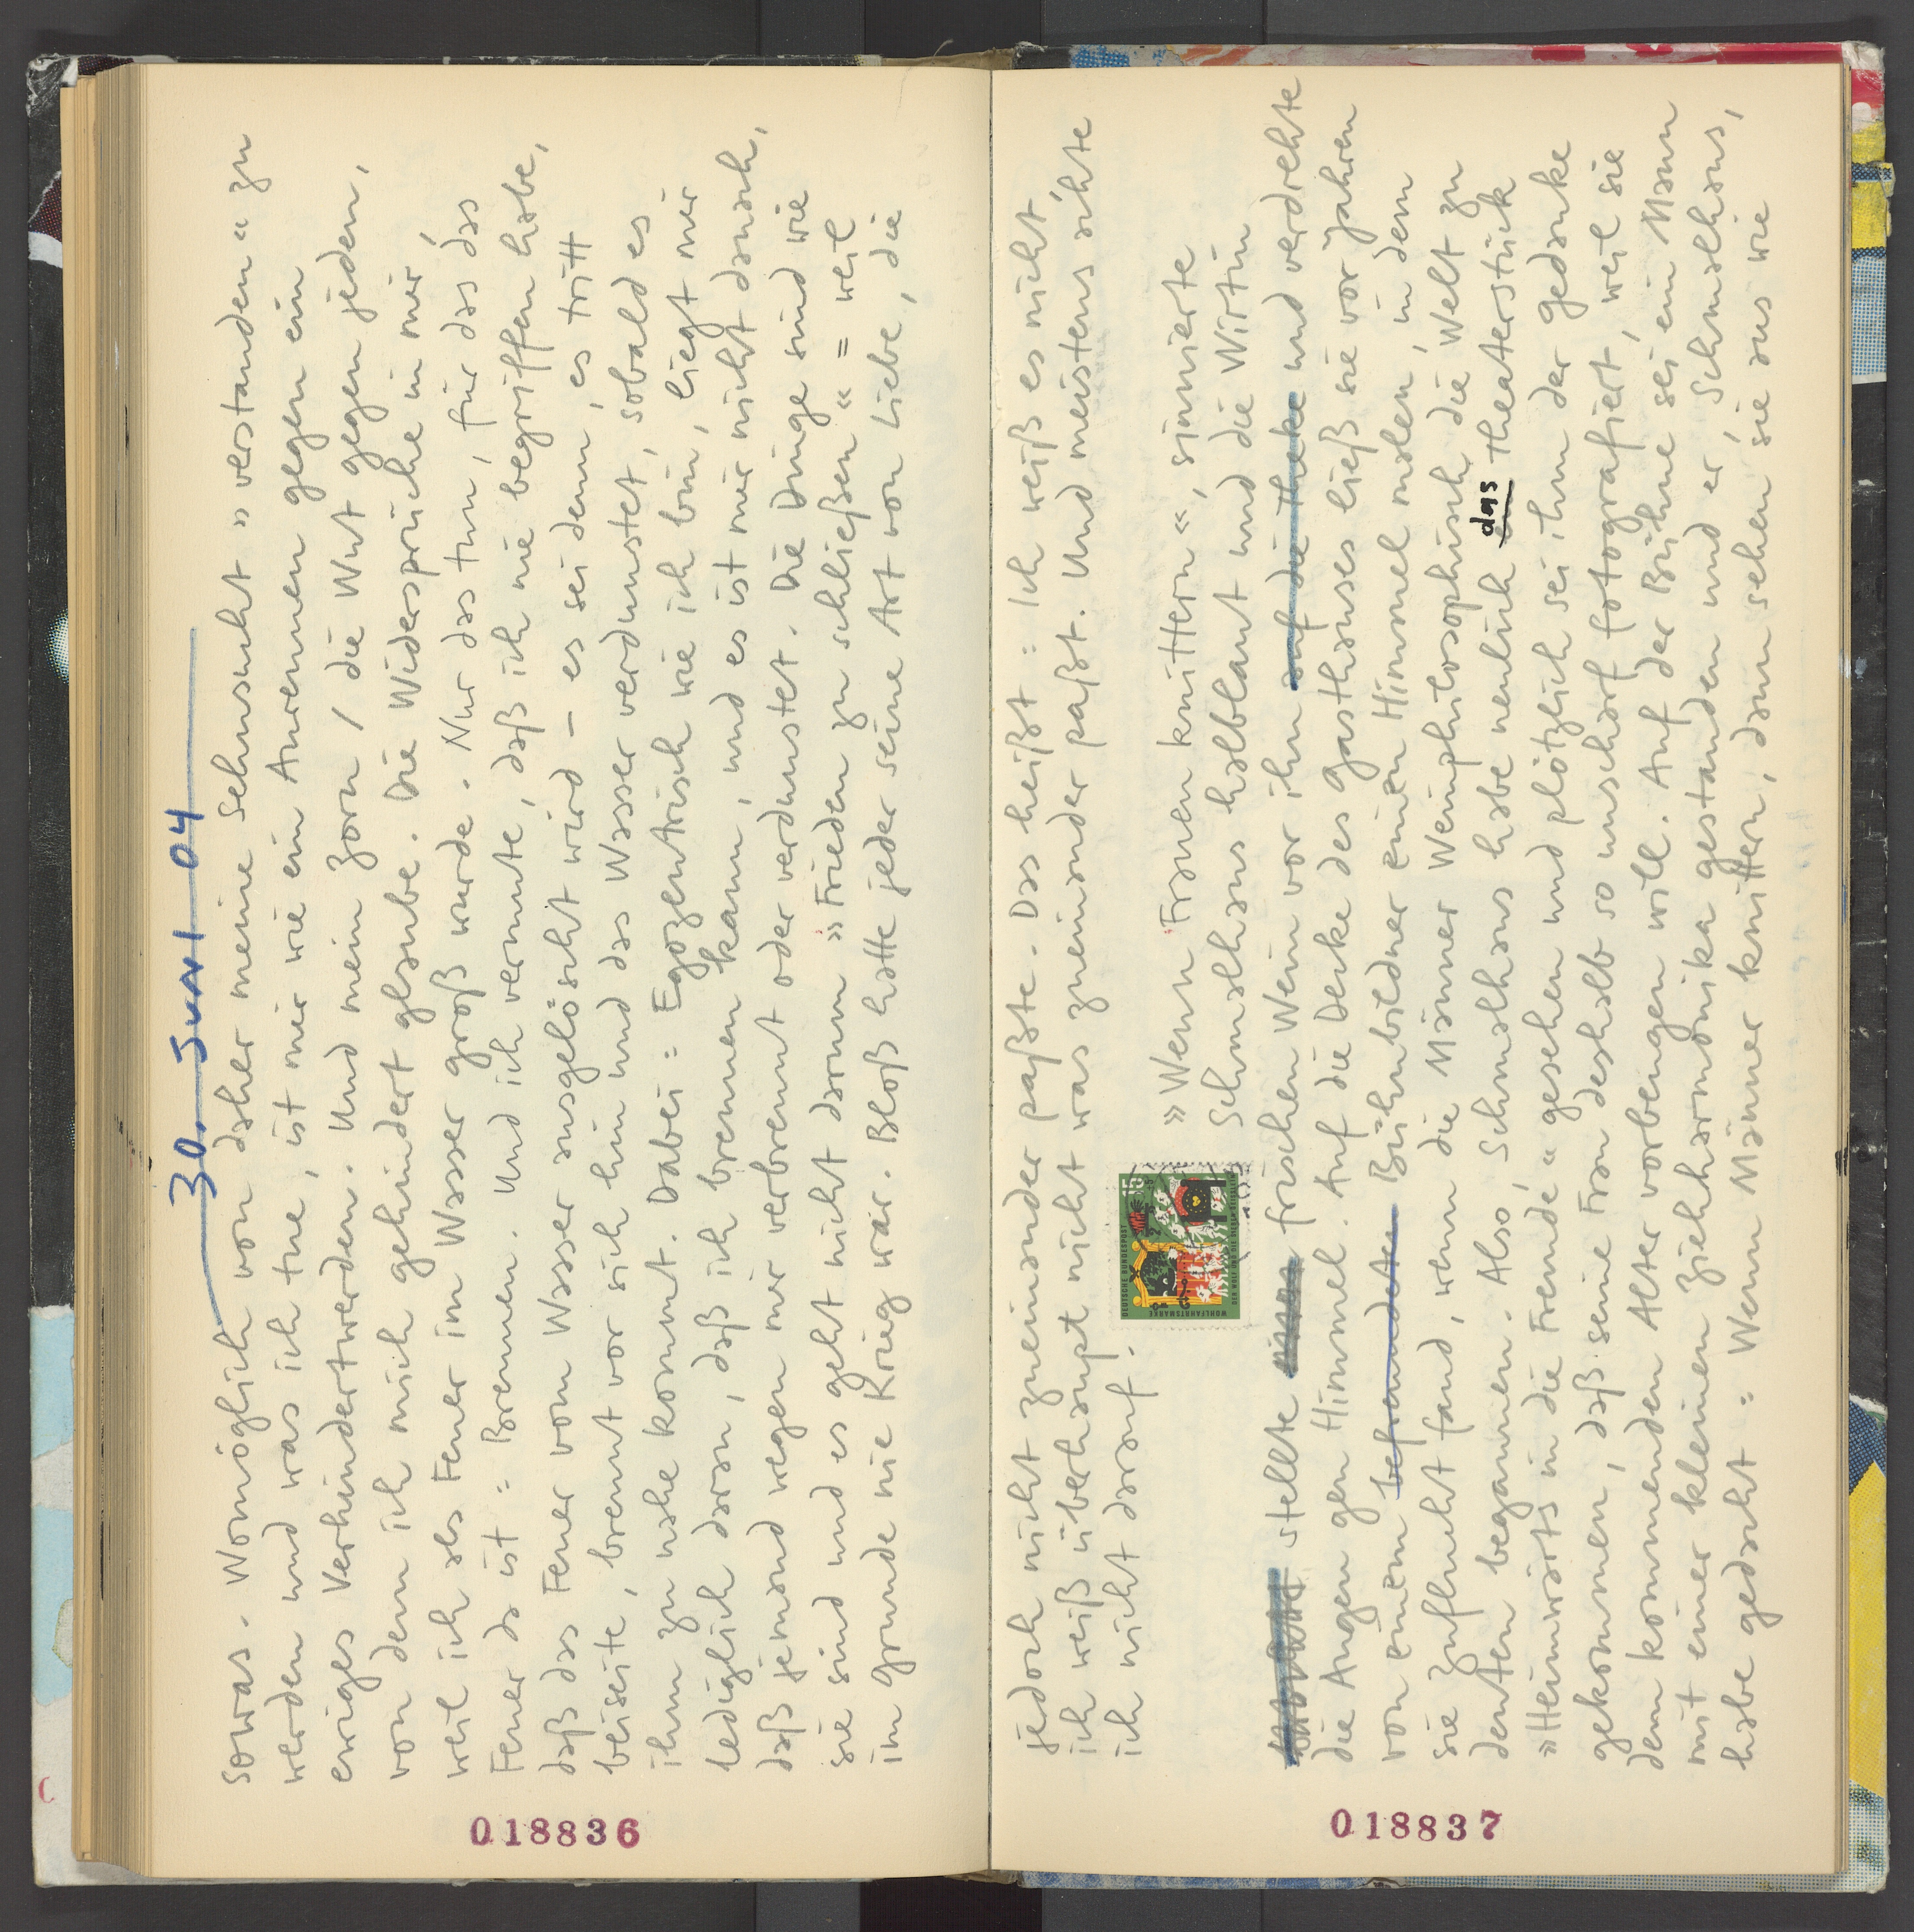 30. Juni 04
sowas. Womöglich von daher meine Sehnsucht »verstanden« zu
werden und was ich tue, ist mir wie ein Anrennen gegen ein
ewiges Verhindertwerden. Und mein Zorn / die Wut gegen jeden,
von dem ich mich gehindert glaube. Die Widersprüche in mir,
weil ich als Feuer im Wasser groß wurde. Nur das tun, für das das
Feuer da ist: Brennen. Und ich vermute, daß ich nie begriffen habe,
daß das Feuer vom Wasser ausgelöscht wird – es sei denn, es tritt
beiseite, brennt vor sich hin und das Wasser verdunstet, sobald es
ihm zu nahe kommt. Dabei: Egozentrisch wie ich bin, liegt mir
lediglich daran, daß ich brennen kann, und es ist mir nicht danach,
daß jemand wegen mir verbrennt oder verdunstet. Die Dinge sind wie
sie sind und es geht nicht darum »Frieden zu schließen« = weil
im Grunde nie Krieg war. Bloß hatte jeder seine Art von Liebe, die
018836
jedoch nicht zueinander paßte. Das heißt: Ich weiß es nicht,
ich weiß überhaupt nicht was zueinander paßt. Und meistens achte
ich nicht darauf.
DEUTSCHE BUNDESPOST
15
WOHLFAHRTSMARKE
DER WOLF UND DIE SIEBEN GEISSLEIN
»Wenn Frauen knittern«, sinnierte
Schmalhans halblaut und die Wirtin
stellte einen frischen Wein vor ihn auf die Theke und verdrehte
die Augen gen Himmel. Auf die Decke des Gasthauses ließ sie vor Jahren
von einem befreundeten Bühnbildner einen Himmel malen, in dem
sie Zuflucht fand, wenn die Männer weinphilosophisch die Welt zu
deuten begannen. Also, Schmalhans habe neulich das Theaterstück
»Heimwärts in die Fremde« gesehen und plötzlich sei ihm der Gedanke
gekommen, daß seine Frau deshalb so unscharf fotografiert, weil sie
dem kommenden Alter vorbeugen will. Auf der Bühne sei ein Mann
mit einer kleinen Ziehharmonika gestanden und er, Schmalhans,
habe gedacht: Wenn Männer knittern, dann sehen sie aus wie
018837